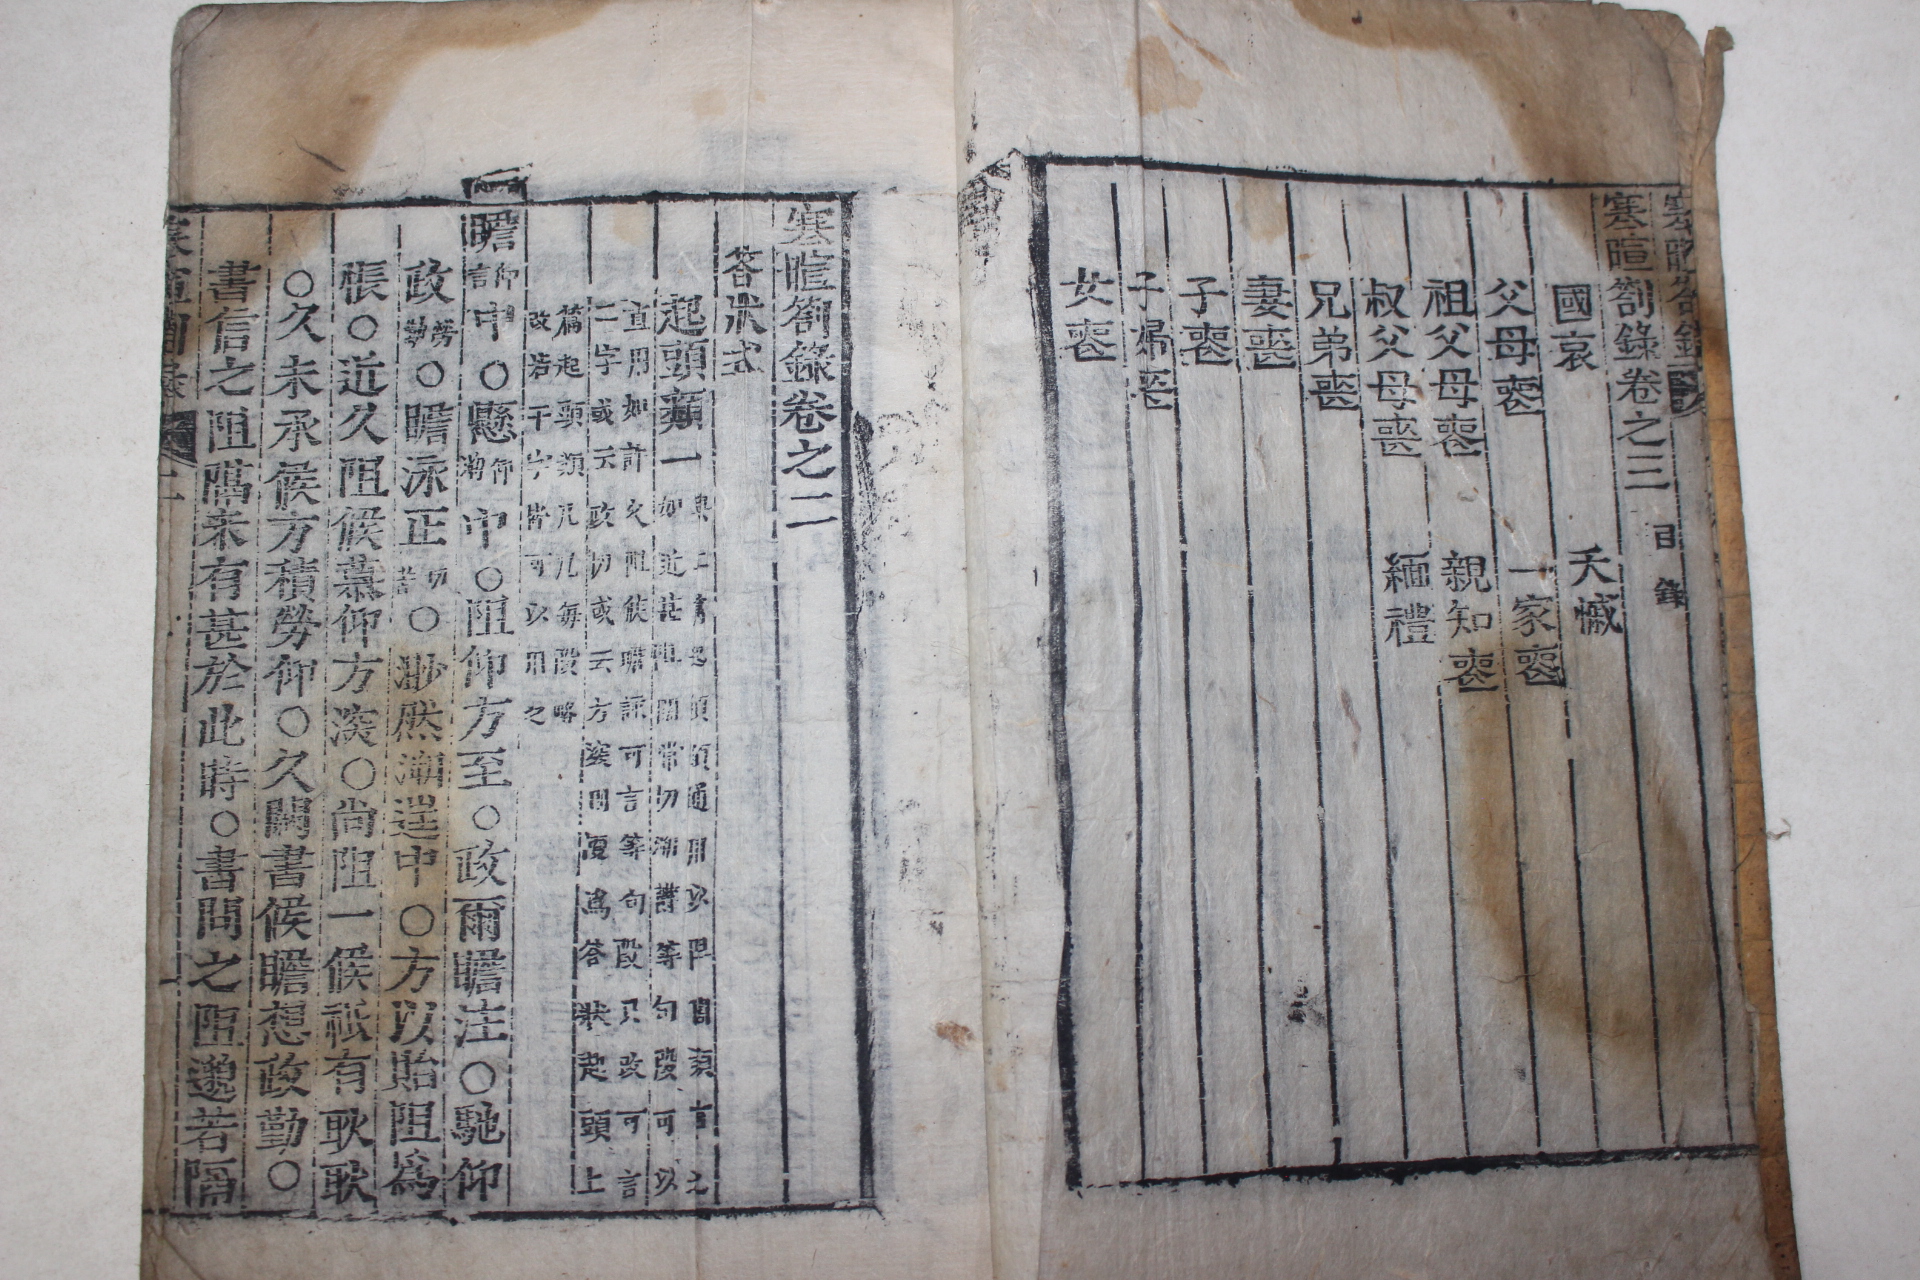 寒暄劄錄卷之三　目錄
國哀　夭慽
父母喪　一家喪
祖父母喪　親知喪
叔父母喪　緬禮
兄弟喪
妻喪
子喪
子婦喪
女喪
寒暄劄錄卷之二
答狀式
起頭類一
直用如許久阻餘瞻詠可言等句段只改可言
二字或云政切或云方深因復爲答狀起頭上
篇起頭類凡九每段略
改若干字皆可以用之
瞻仰中○懸仰中○阻仰方至○政爾瞻注○馳仰
政勞○瞻泳正切○渺然溯遑中○方以貽阻爲
悵○近久阻候慕仰方深○尙阻一候秪有耿耿
○久未承候方積勞仰○久闕書候瞻想政勤○
書信之阻隔未有甚於此時○書問之阻邈若隔